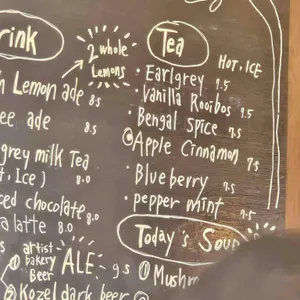 rink
2 whole
Lemons
n Lemon ade 8.5
ee ade 8.5
grey milk Tea
t. Ice) 8.0
ced chocolate 8.0
a latte 8.0
s artist
bakery
Beer
ALE - 9.5
Kozel dark beer
Tea
HOT, ICE
· Earlgrey 7.5
· Vanilla Rooibos 7.5
· Bengal spice 7.5
Apple Cinnamon 7.5
· Blueberry 7.5
· pepper mint 7.5
Today's Soup
① Mushr